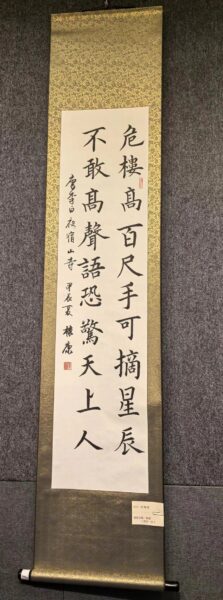 危樓高百尺手可摘星辰
不敢高聲語恐驚天上人
唐李白夜宿山寺 甲辰夏